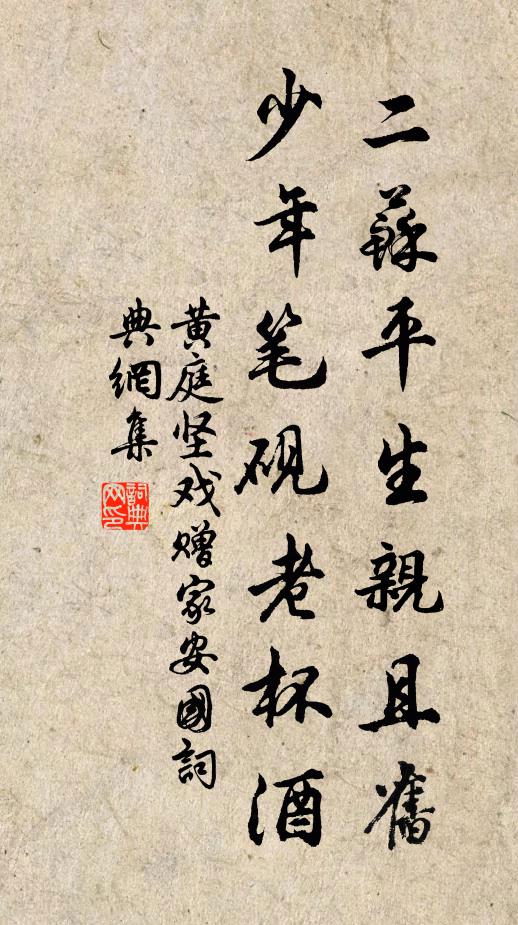 二蘇平生親且舊
少年笔硯老杯酒
黄庭坚戏赠家安國詞
典網集
詞典
网印